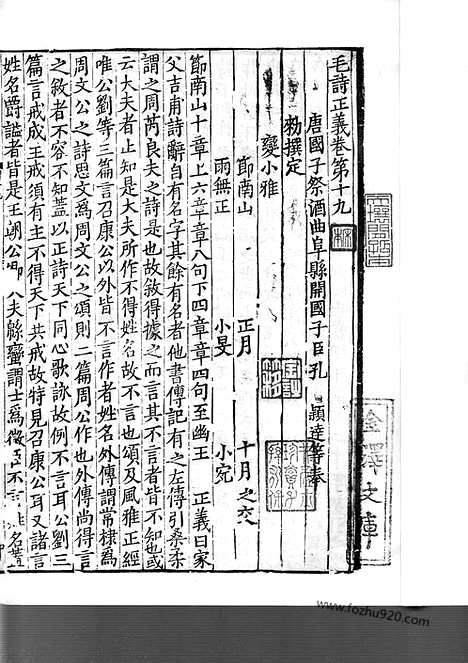 毛詩正義卷第十九
唐國子祭酒曲阜縣開國子臣孔 頴達等奉
勑撰定
變小雅
節南山 正月 十月之交
雨無正 小旻 小宛
節南山十章上六章章八句下四章章四句至幽王 正義曰家
父吉甫詩辭自有名字其餘有名者他書傳記有之左傳引桑柔
謂之周芮良夫之詩是也故敘得據之而言其不言者或不知也或
云大夫者止知是大夫所作不得姓名故不言也頌及風雅正經
唯公劉等三篇言召康公以外皆不言作者姓名外傳謂常棣為
周文公之詩思文為周文公之頌則二篇周公作也外傳尚得言
之敘者不容不知蓋以正詩天下同心歌詠故例不言耳公劉三
篇言戒成王戒須有主不得天下共戒故特見召康公耳又諸言
姓名爵謚者皆是王朝公卿 大夫緜蠻謂士為微臣不言姓名蓋
金澤文庫
www.fozhu920.com